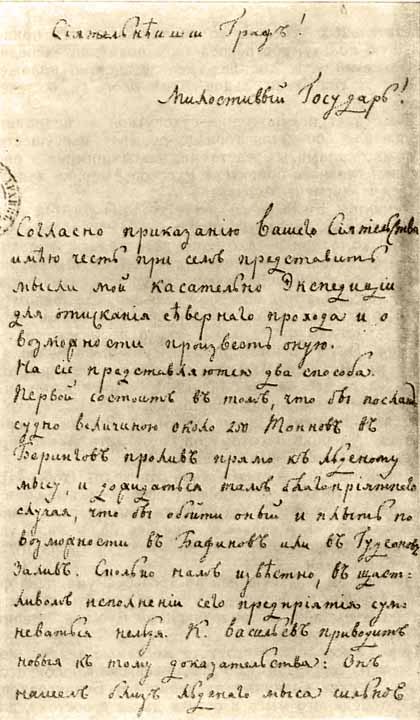 Сіятельнѣйшій Графъ!
Милостивый Государь!
Согласно приказанію вашего Сіятельства
имѣю честь при семъ представить
мысли мой касательно Экспедиціи
для отисканія сѣвернаго прохода и о
возможности произвесть оную.
На сіе представляются два способа.
Первой состоитъ въ томъ, что бы послать
судно величиною около 200 Тонновъ въ
Беринговъ проливъ прямо къ Ледяному
мысу, и дожидаться тамъ благопріятнаго
случая, что бы обойти оный и плыть по
возможности въ Бафиновъ или въ Гудсоновъ
Заливъ. Сколько намъ извѣстно, въ щаст-
ливомъ исполненіи сего предпріятія сум-
неваться нельзя. К. Васильевъ приводитъ
новыя къ тому доказательства: Онъ
нашелъ близъ Ледянаго мыса сильное